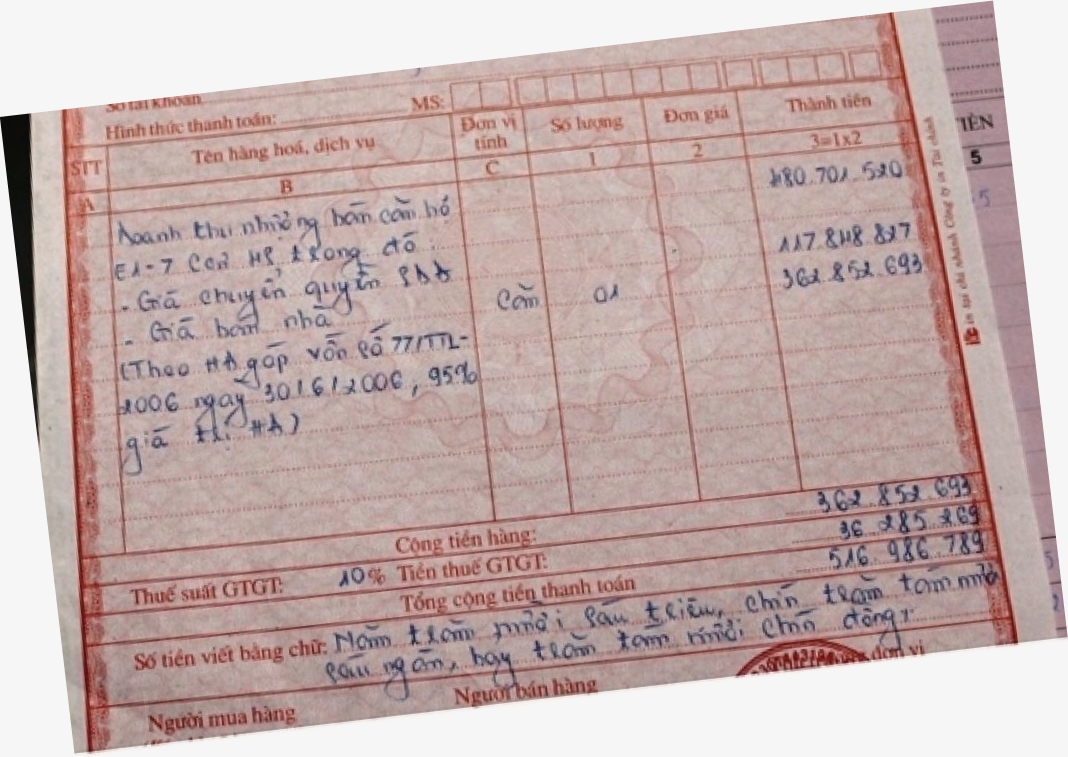 Số tài khoản
Hình thức thanh toán: MS:
STT Tên hàng hoá, dịch vụ Đơn vị tính Số lượng Đơn giá Thành tiền
A B C 1 2 3=1x2
Doanh thu nhượng bán căn hộ 480.701.520
E1-7 CC2 Mỹ trong đó:
- Giá chuyển quyền SDĐ 117.848.827
- Giá bán nhà Căn 01 362.852.693
(Theo HĐ góp vốn số 77/TTL-
2006 ngày 30/6/2006, 95%
giá trị HĐ)
Cộng tiền hàng: 362.852.693
Thuế suất GTGT: 10% Tiền thuế GTGT: 36.285.269
Tổng cộng tiền thanh toán 516.986.789
Số tiền viết bằng chữ: Năm trăm mười sáu triệu, chín trăm tám mươi
sáu ngàn, bảy trăm tám mươi chín đồng
Người mua hàng Người bán hàng đơn vị
in tại chi nhánh Công ty in Tài chính
IÊN
5